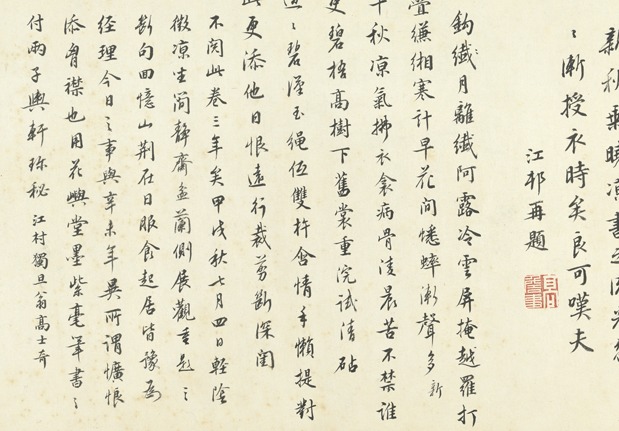 新秋乘曉涼書之
〻漸授衣時矣良可嘆夫
江邨再題
鈎纖月離纖阿露冷雲屏掩越羅打
疊縑緗寒計早花間蟋蟀漸聲多 新
秋涼氣拂衣衾病骨淩晨苦不禁誰
更碧梧高樹下舊裳重浣試清砧
〻碧漢玉繩低雙杵含情手懶提對
此更添他日恨遠行裁剪斷深閨
不閱此卷三年矣甲戌秋七月四日輕陰
微凉坐簡靜齋盆蘭側展觀重題〻
斷句回憶山荆在日服食起居皆豫為
經理今日之事與辛未年異所謂懭悢
添襟也用花嶼堂墨紫毫筆書〻
付兩子輿軒珍秘 江村獨旦翁高士奇